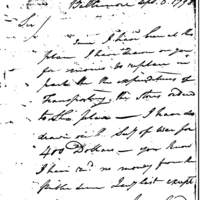 Baltimore Sept. 5. 179
Sir/
I have been at this
place I have drawn on you
for monies to replace in
part the expenditures of
Transporting the Stores ordered
to this place — I have also
drawn on Secy of War for
400 Dollars — you know
I have recd no money from the
public since July last except